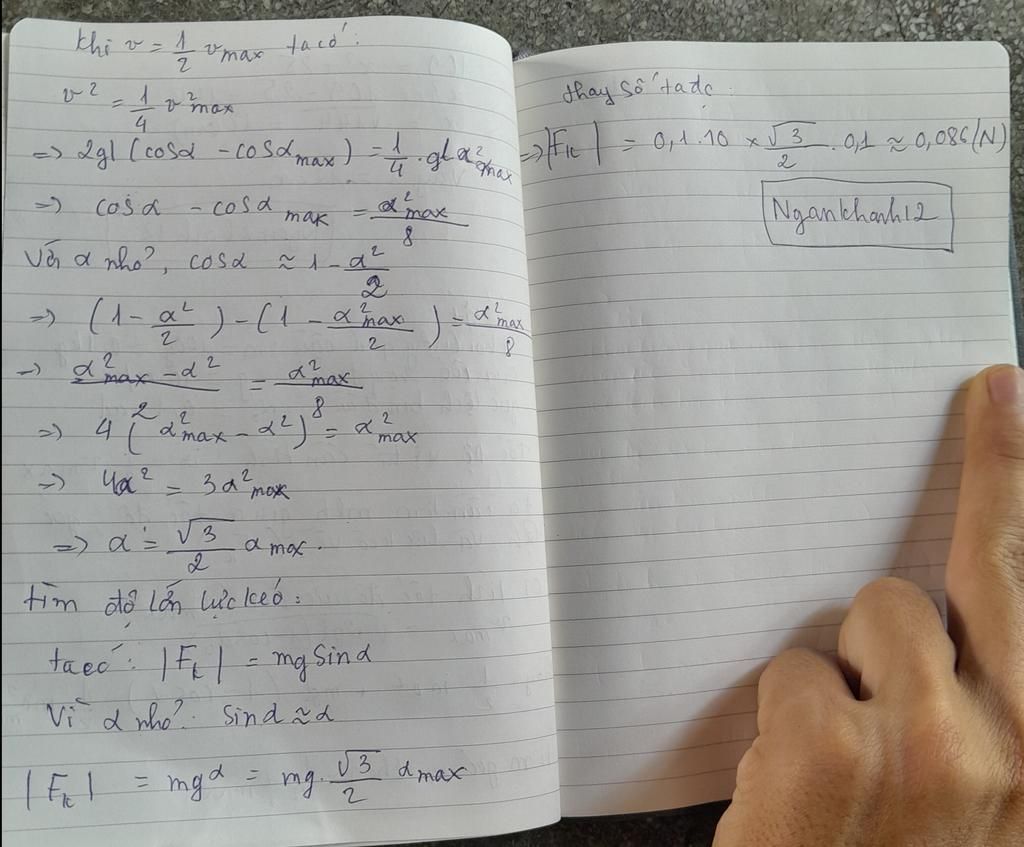 Khi v = 1/2 v_max ta có:
v² = 1/4 v²_max
=> 2gl (cosα - cosα_max) = 1/4 . gl α²_max
=> cosα - cosα_max = α²_max/8
Với α nhỏ, cosα ≈ 1 - α²/2
=> (1 - α²/2) - (1 - α²_max/2) = α²_max/8
=> (α²_max - α²)/2 = α²_max/8
=> 4(α²_max - α²) = α²_max
=> 4α² = 3α²_max
=> α = √3/2 α_max.
Tìm độ lớn lực kéo:
ta có: |F_k| = mg sinα
Vì α nhỏ: sinα ≈ α
|F_k| = mgα = mg. √3/2 α_max
thay số ta đc:
=> |F_k| = 0,1.10 × √3/2 . 0,1 ≈ 0,086 (N)
Ngankhanh12